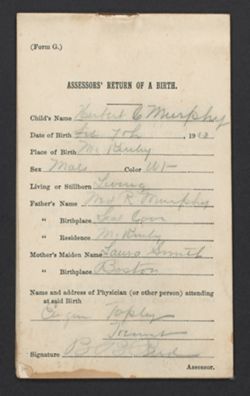 (Form G.)
ASSESSORS' RETURN OF A BIRTH.
Child's Name Herbert C Murphy
Date of Birth 7th, 19
Place of Birth McKinly
Sex Male Color Wt
Living or Stillborn Living
Father's Name R Murphy
" Birthplace Seal Cove
" Residence McKinly
Mother's Maiden Name Laura Smith
" Birthplace Boston
Name and address of Physician (or other person) attending
at said Birth
Tapley
Tremont
Signature B
Assessor.